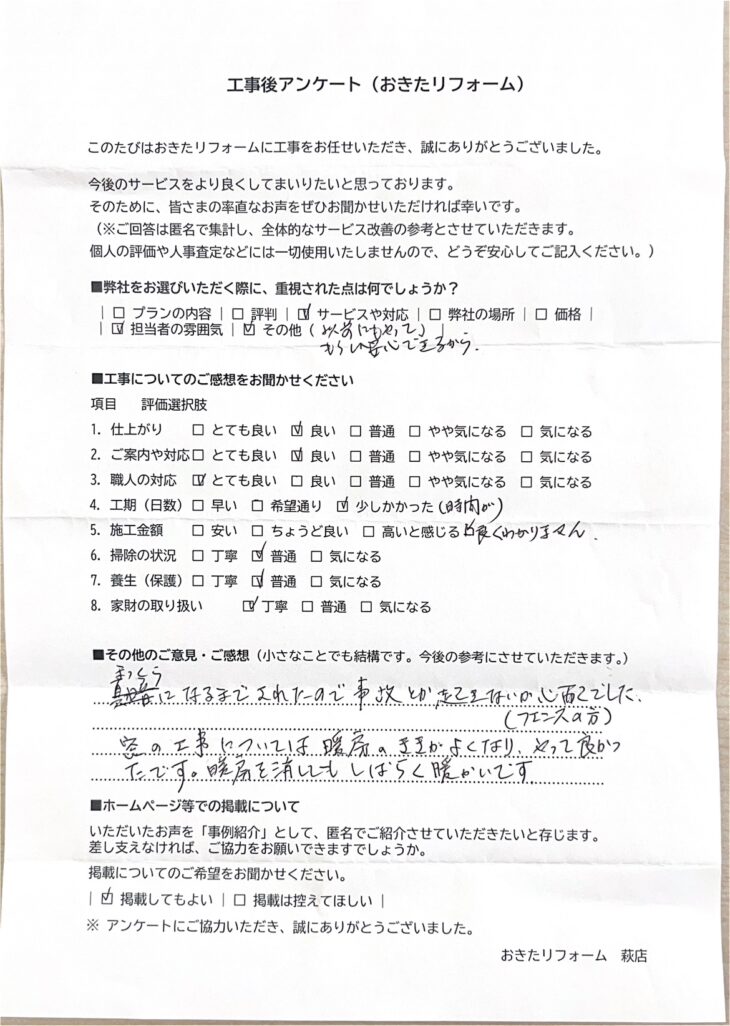 工事後アンケート（おきたリフォーム）
このたびはおきたリフォームに工事をお任せいただき、誠にありがとうございました。
今後のサービスをより良くしてまいりたいと思っております。
そのために、皆さまの率直なお声をぜひお聞かせいただければ幸いです。
（※ご回答は匿名で集計し、全体的なサービス改善の参考とさせていただきます。
個人の評価や人事査定などには一切使用いたしませんので、どうぞ安心してご記入ください。）
■弊社をお選びいただく際に、重視された点は何でしょうか？
| ☐ プランの内容 | ☐ 評判 | ☑ サービスや対応 | ☐ 弊社の場所 | ☐ 価格 |
| ☑ 担当者の雰囲気 | ☑ その他（以前にもやって）|
もらい安心できるから.
■工事についてのご感想をお聞かせください
項目 評価選択肢
1. 仕上がり ☐ とても良い ☑ 良い ☐ 普通 ☐ やや気になる ☐ 気になる
2. ご案内や対応 ☐ とても良い ☑ 良い ☐ 普通 ☐ やや気になる ☐ 気になる
3. 職人の対応 ☑ とても良い ☐ 良い ☐ 普通 ☐ やや気になる ☐ 気になる
4. 工期（日数） ☐ 早い ☐ 希望通り ☑ 少しかかった（時間が）
5. 施工金額 ☐ 安い ☐ ちょうど良い ☐ 高いと感じる ☑ 良くわかりません.
6. 掃除の状況 ☐ 丁寧 ☑ 普通 ☐ 気になる
7. 養生（保護） ☐ 丁寧 ☑ 普通 ☐ 気になる
8. 家財の取り扱い ☑ 丁寧 ☐ 普通 ☐ 気になる
■その他のご意見・ご感想（小さなことでも結構です。今後の参考にさせていただきます。）
まっくら
になるまでされたので事故とか起きないか心配でした.
（フェンスの方）
窓の工事については暖房のききがよくなり、やって良かっ
たです。暖房を消してもしばらく暖かいです
■ホームページ等での掲載について
いただいたお声を「事例紹介」として、匿名でご紹介させていただきたいと存じます。
差し支えなければ、ご協力をお願いできますでしょうか。
掲載についてのご希望をお聞かせください。
| ☑ 掲載してもよい | ☐ 掲載は控えてほしい |
※ アンケートにご協力いただき、誠にありがとうございました。
おきたリフォーム 萩店